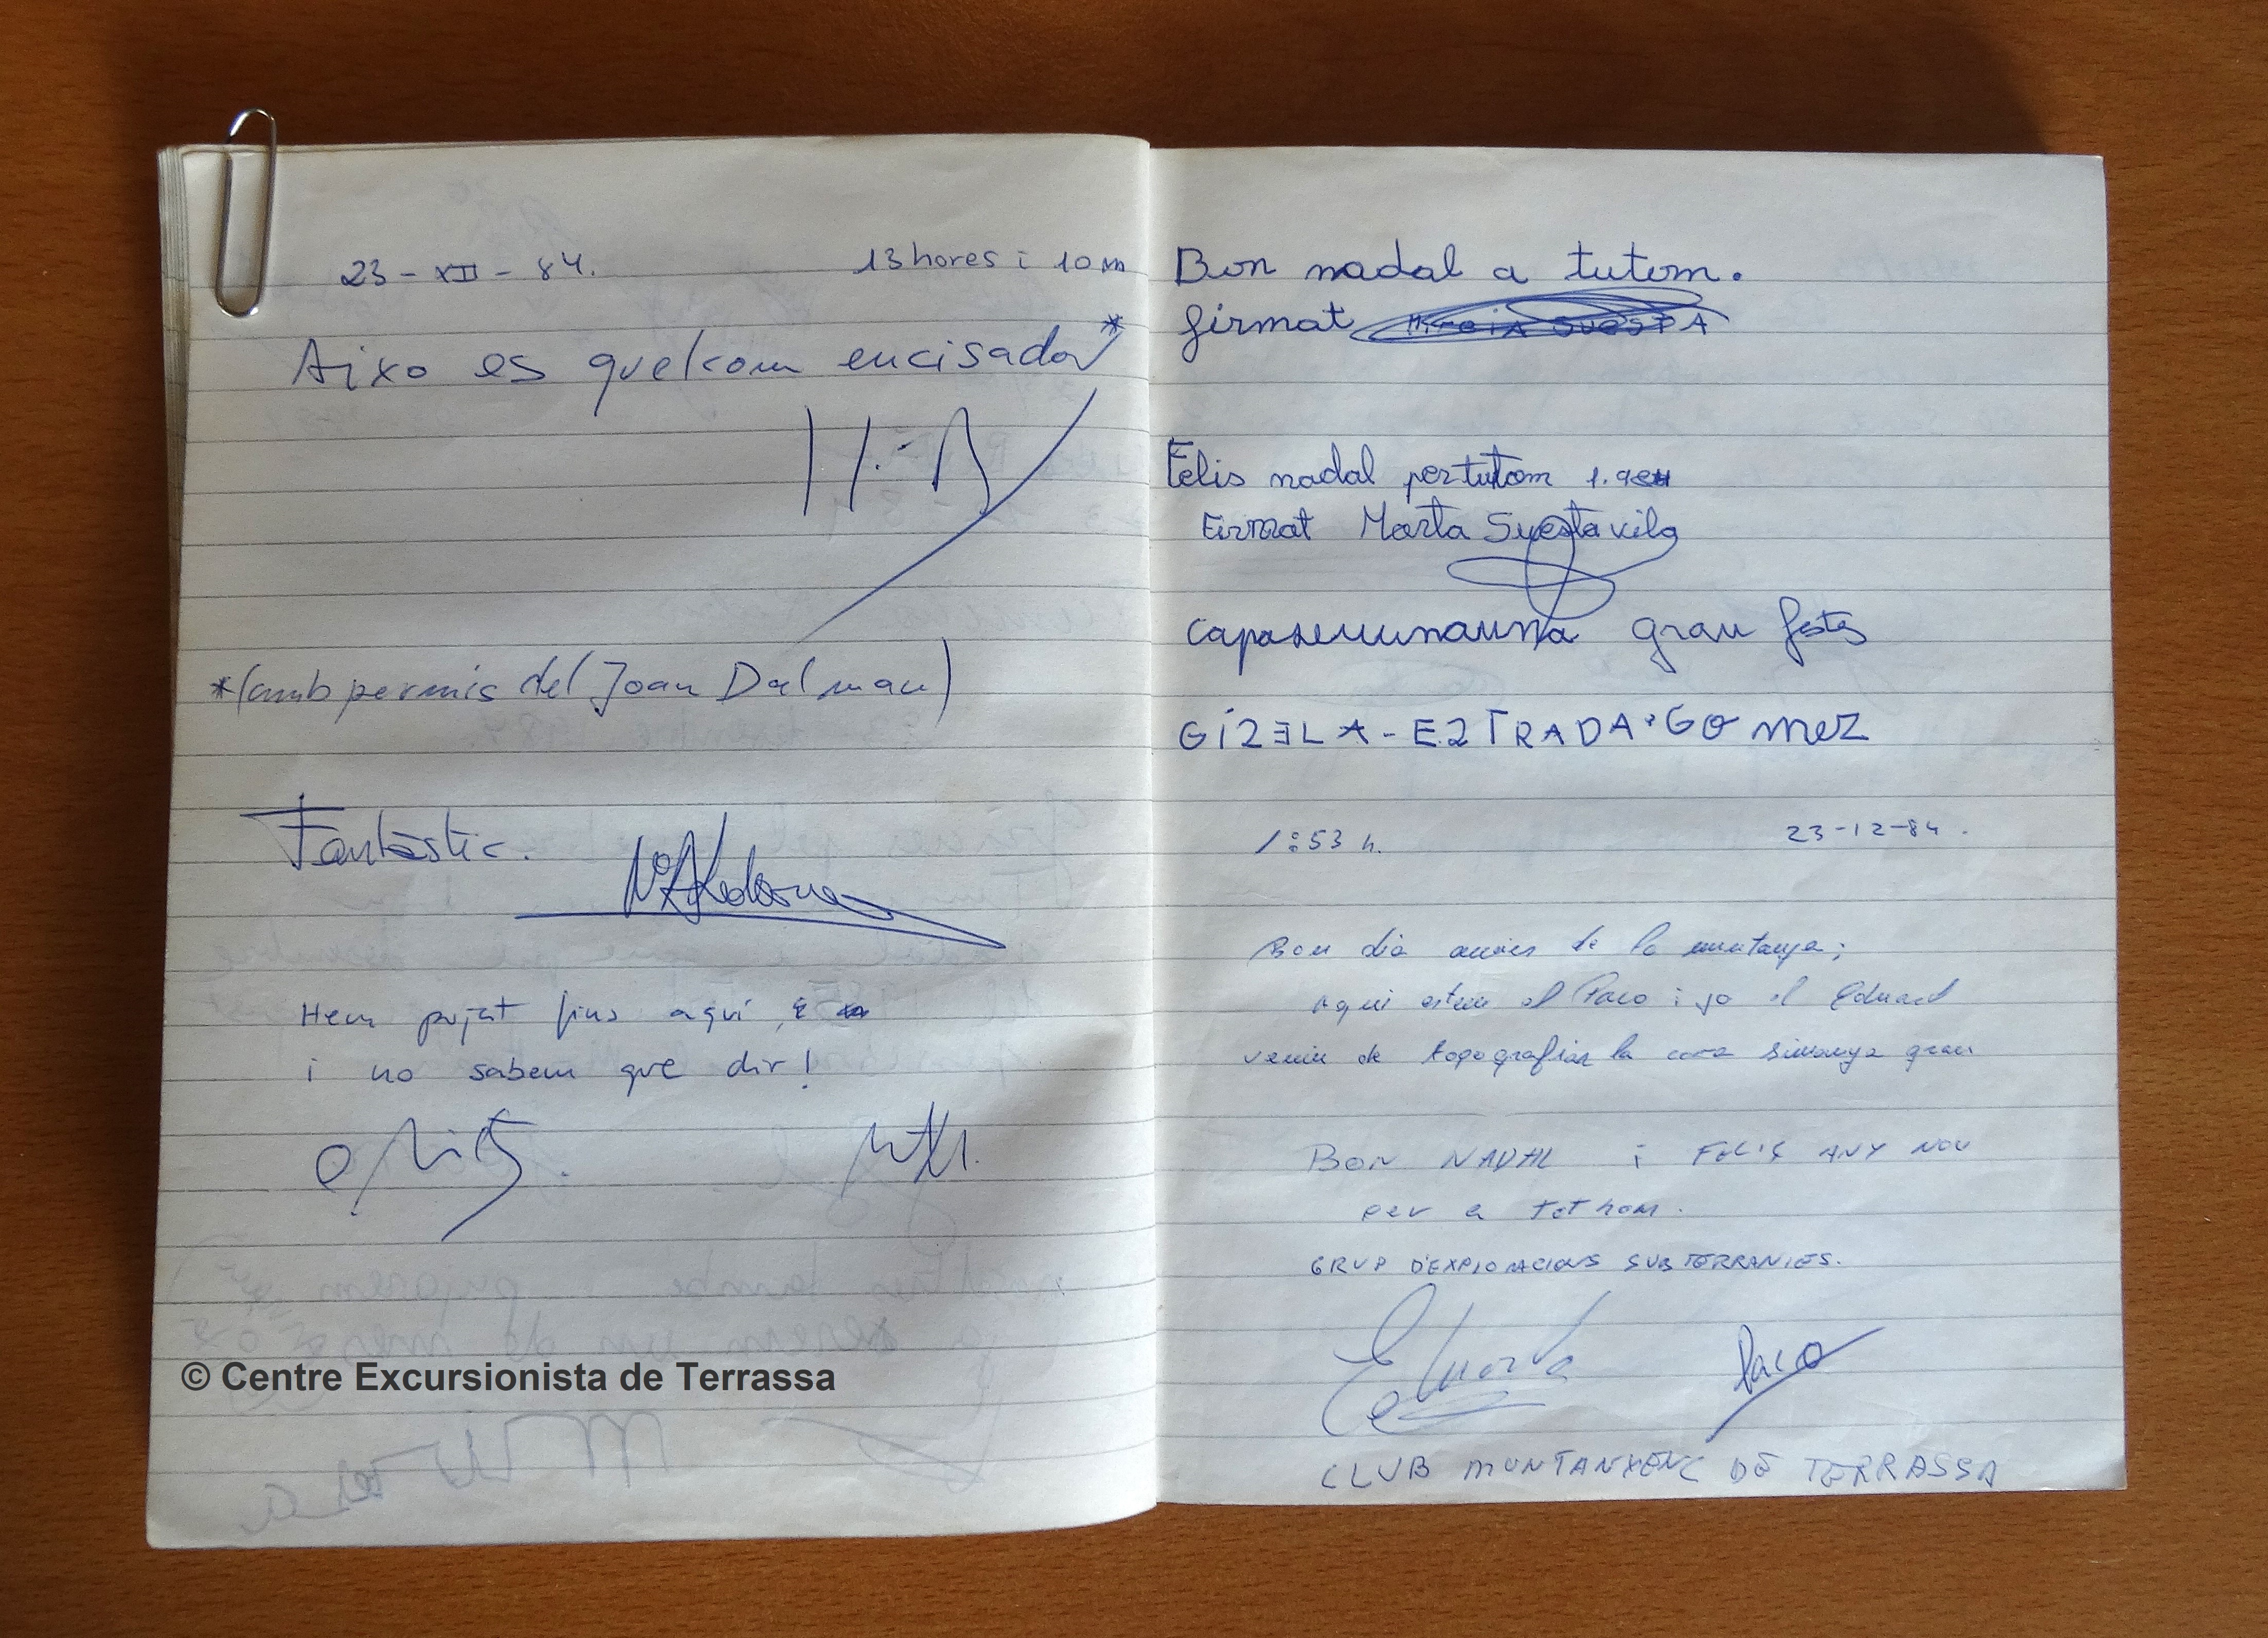 23 - XII - 84. 13 hores i 10 m
Aixo es quelcom encisador*
*(amb permis del Joan Dalmau)
Fantàstic.
Hem pujat fins aquí,
i no sabem que dir!
© Centre Excursionista de Terrassa
Bon nadal a tutom.
firmat
Felis nadal per tutom
Firmat Marta Suesta vila
gran festa
GIZELA-EZTRADA·GOmez
1:53 h. 23-12-84.
Bon dia amics de la muntanya;
Aqui estem el Paco i jo el Eduard
venim de topografiar la cova simanya gran
BON NADAL i FELIÇ ANY NOU
per a tothom.
GRUP D'EXPLORACIONS SUBTERRANIES.
Eduard Paco
CLUB MUNTANYENC DE TERRASSA